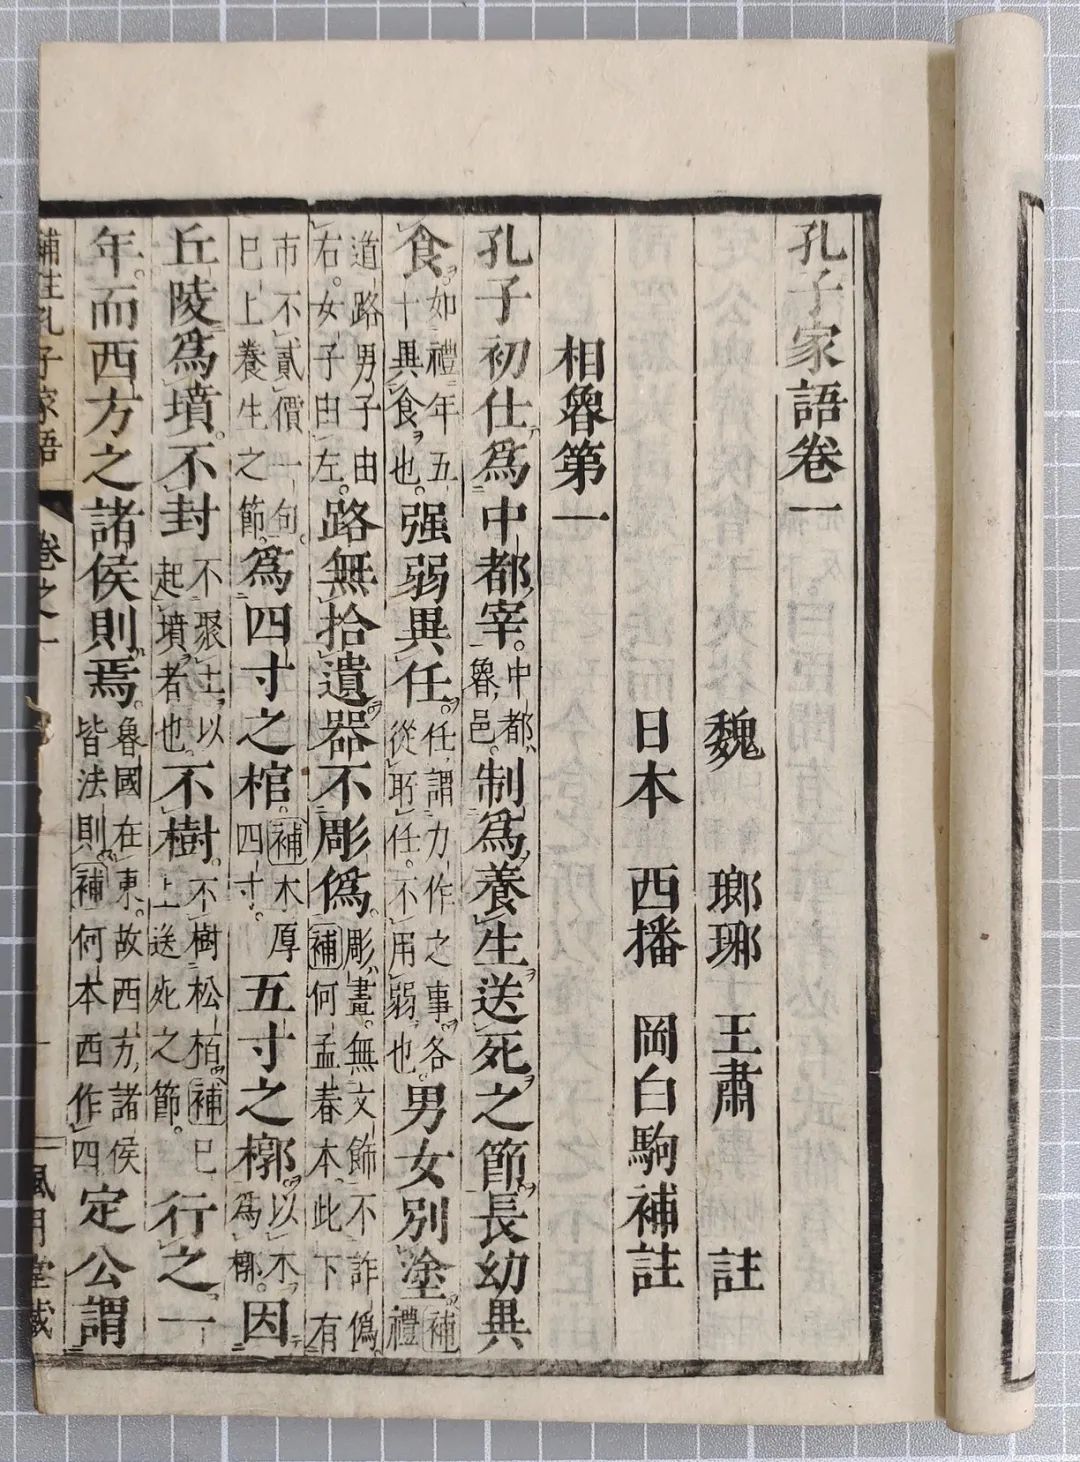 孔子家語卷一
魏 瑯琊 王肅 註
日本 西播 岡白駒補註
相魯第一
孔子初仕爲中都宰。中都、魯邑。制爲養生送死之節長幼異
食。如禮年五十異食也。强弱異任。任謂力作之事。各從所任。不用弱也。男女別塗補禮
道路男子由右。女子由左。路無拾遺器不彫僞。彫、畫。無文飾不詐僞補何孟春本此下有
市不貳價一句。巳上養生之節。爲四寸之棺。補木厚四寸。五寸之槨。以木爲槨。因
丘陵爲墳。不封不聚土以起墳者也。不樹。不樹松栢補巳上送死之節。行之一
年。而西方之諸侯則焉。魯國在東。故西方諸侯皆法則補何本西作四定公謂
補註孔子家語 卷之一 一 風月堂藏